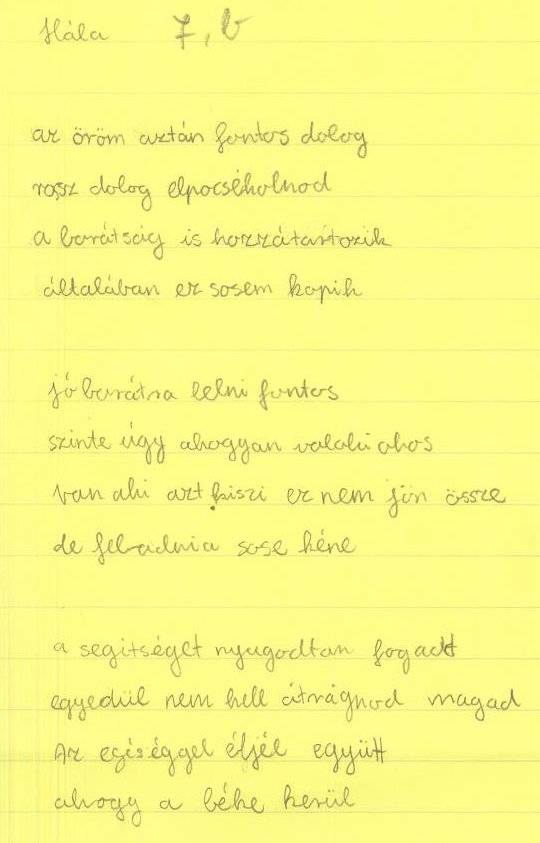 Hála 7, b
az öröm aztán fontos dolog
rossz dolog elpocsékolnod
a barátság is hozzátartozik
általában ez sosem kopik
jó barátra lelni fontos
szinte úgy ahogyan valaki okos
van aki azt hiszi ez nem jön össze
de feladnia sose kéne
a segitséget nyugodtan fogadd
egyedül nem kell átvágnod magad
Az egéséggel éljél együtt
ahogy a béke kerül